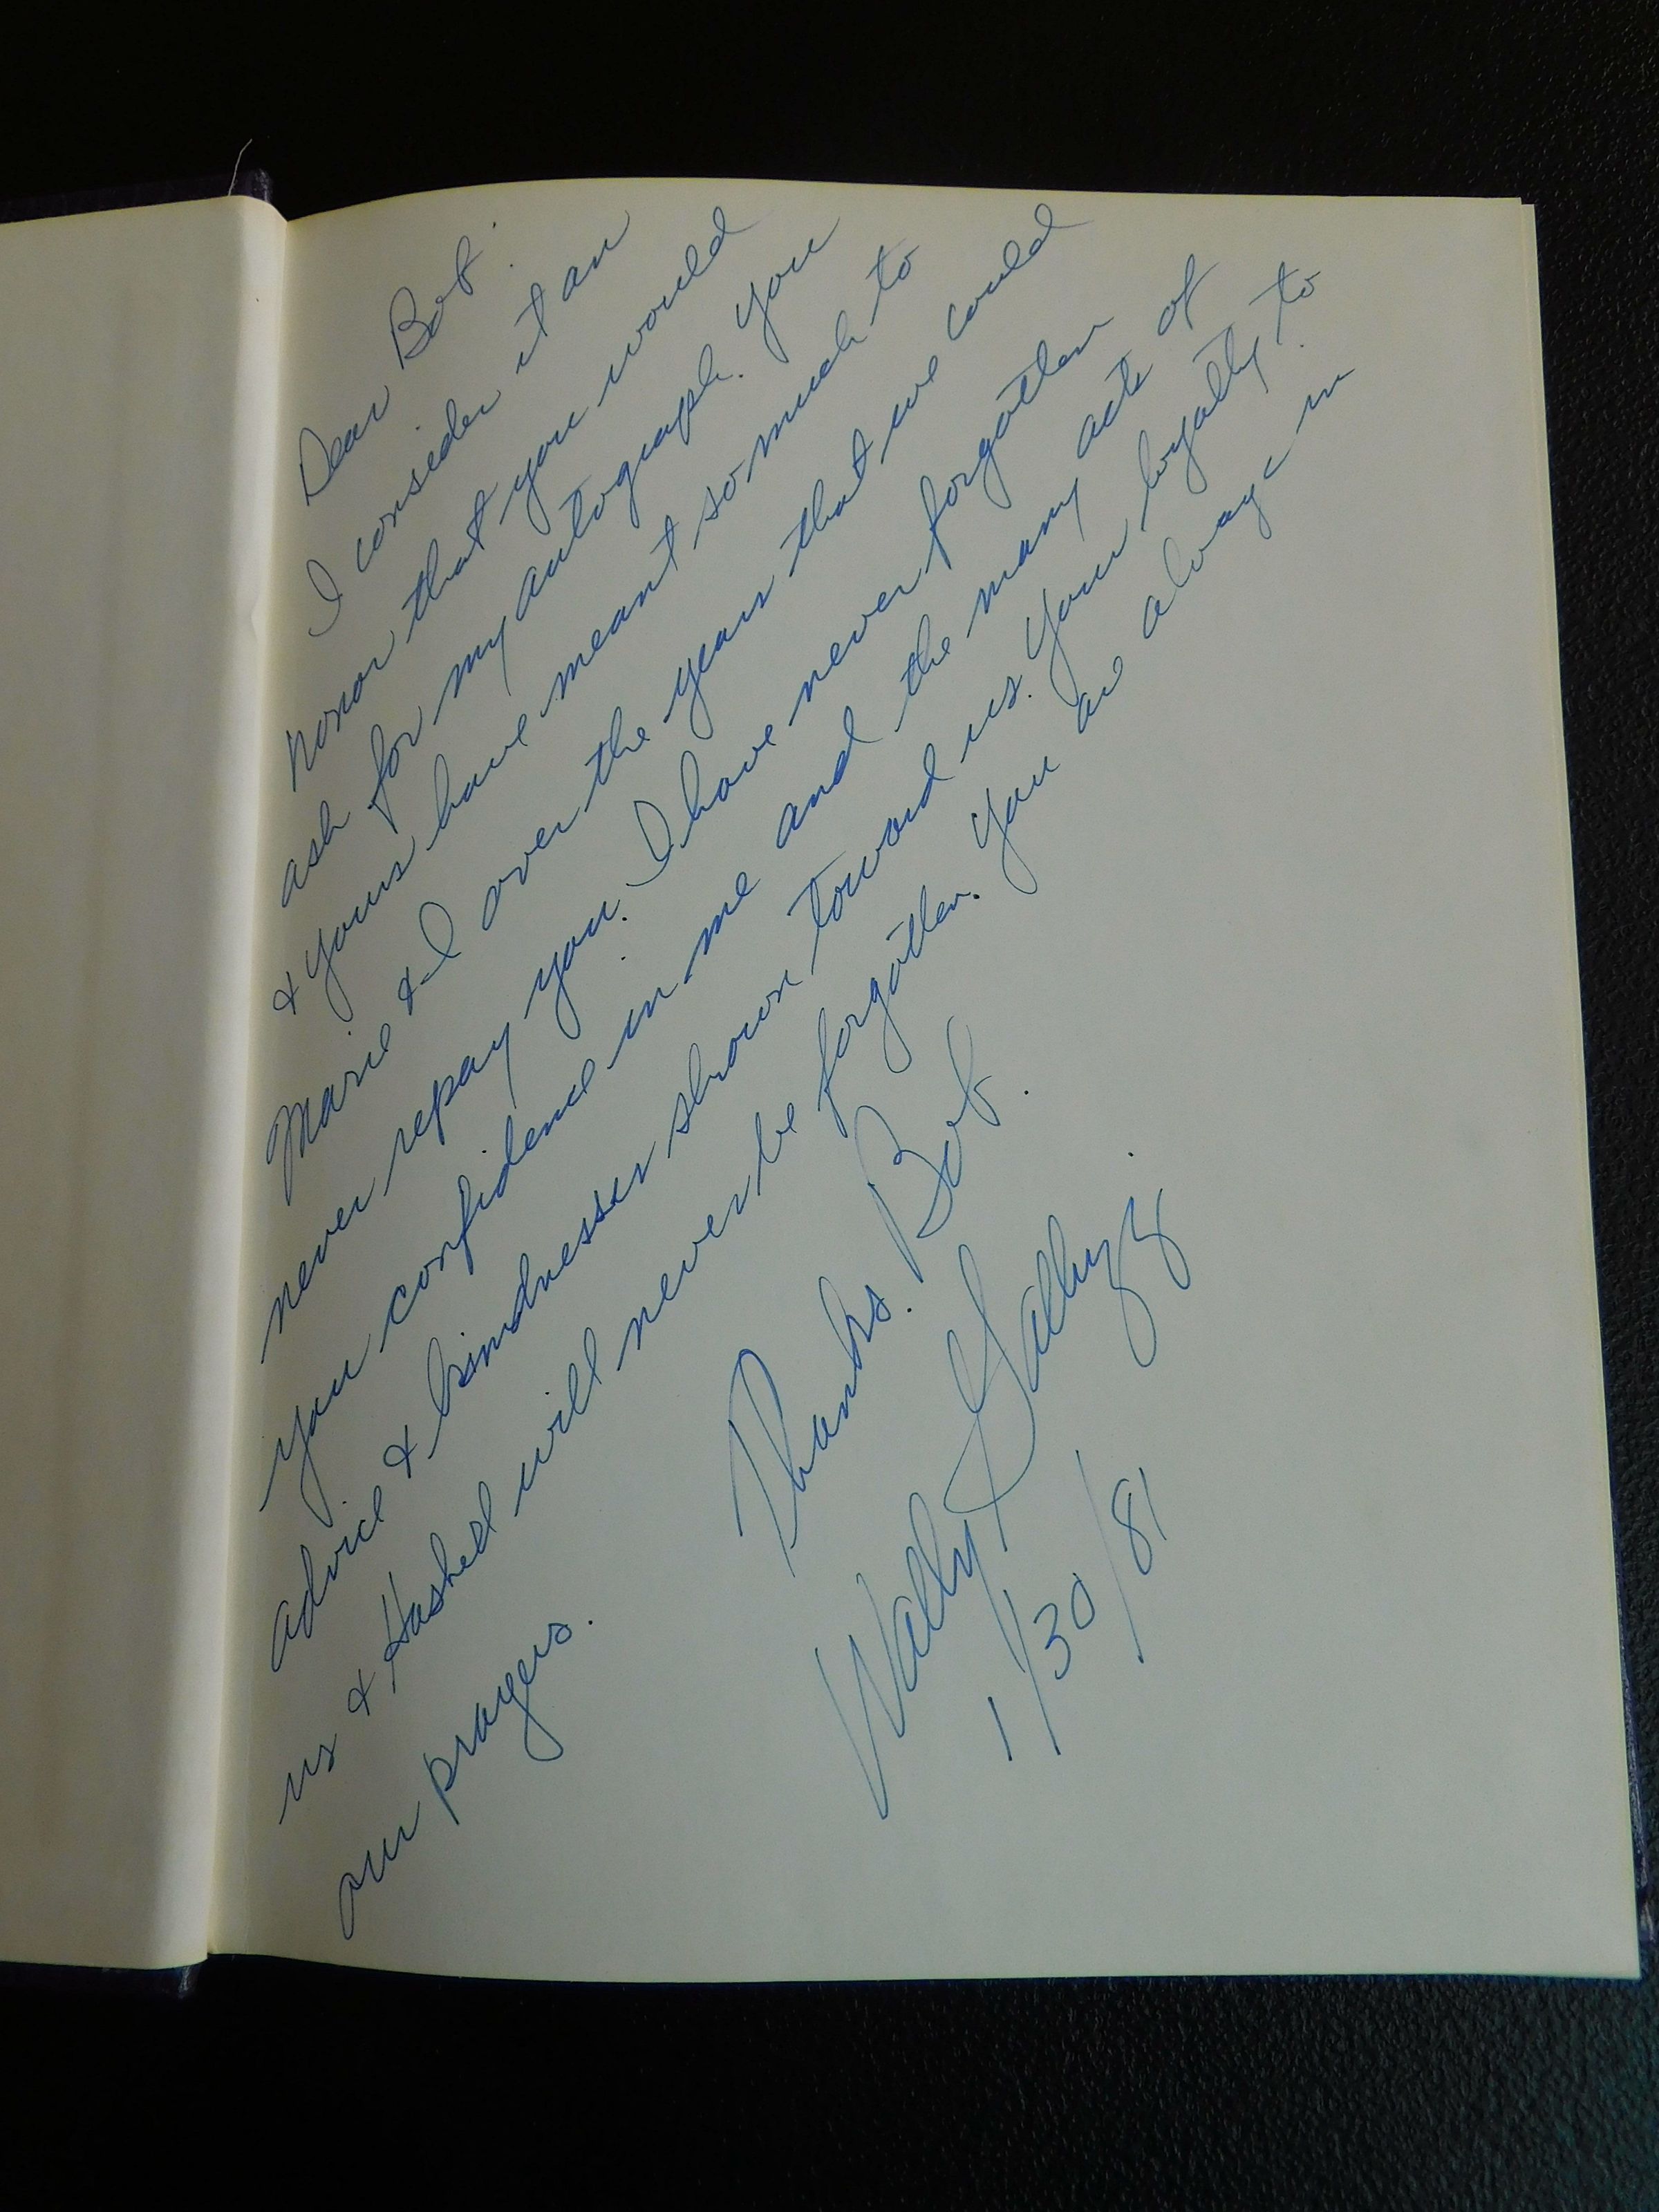 Dear Bob.
I consider it an
honor that you would
ask for my autograph. You
& yours have meant so much to
Marie & I over the years that we could
never repay you. I have never forgotten
you confidence in me and the many acts of
advice & kindnesses shown toward us. Your loyalty to
us & Haskell will never be forgotten. You are always in
our prayers.
Thanks. Bob.
Wally Galluzzi
1/30/81